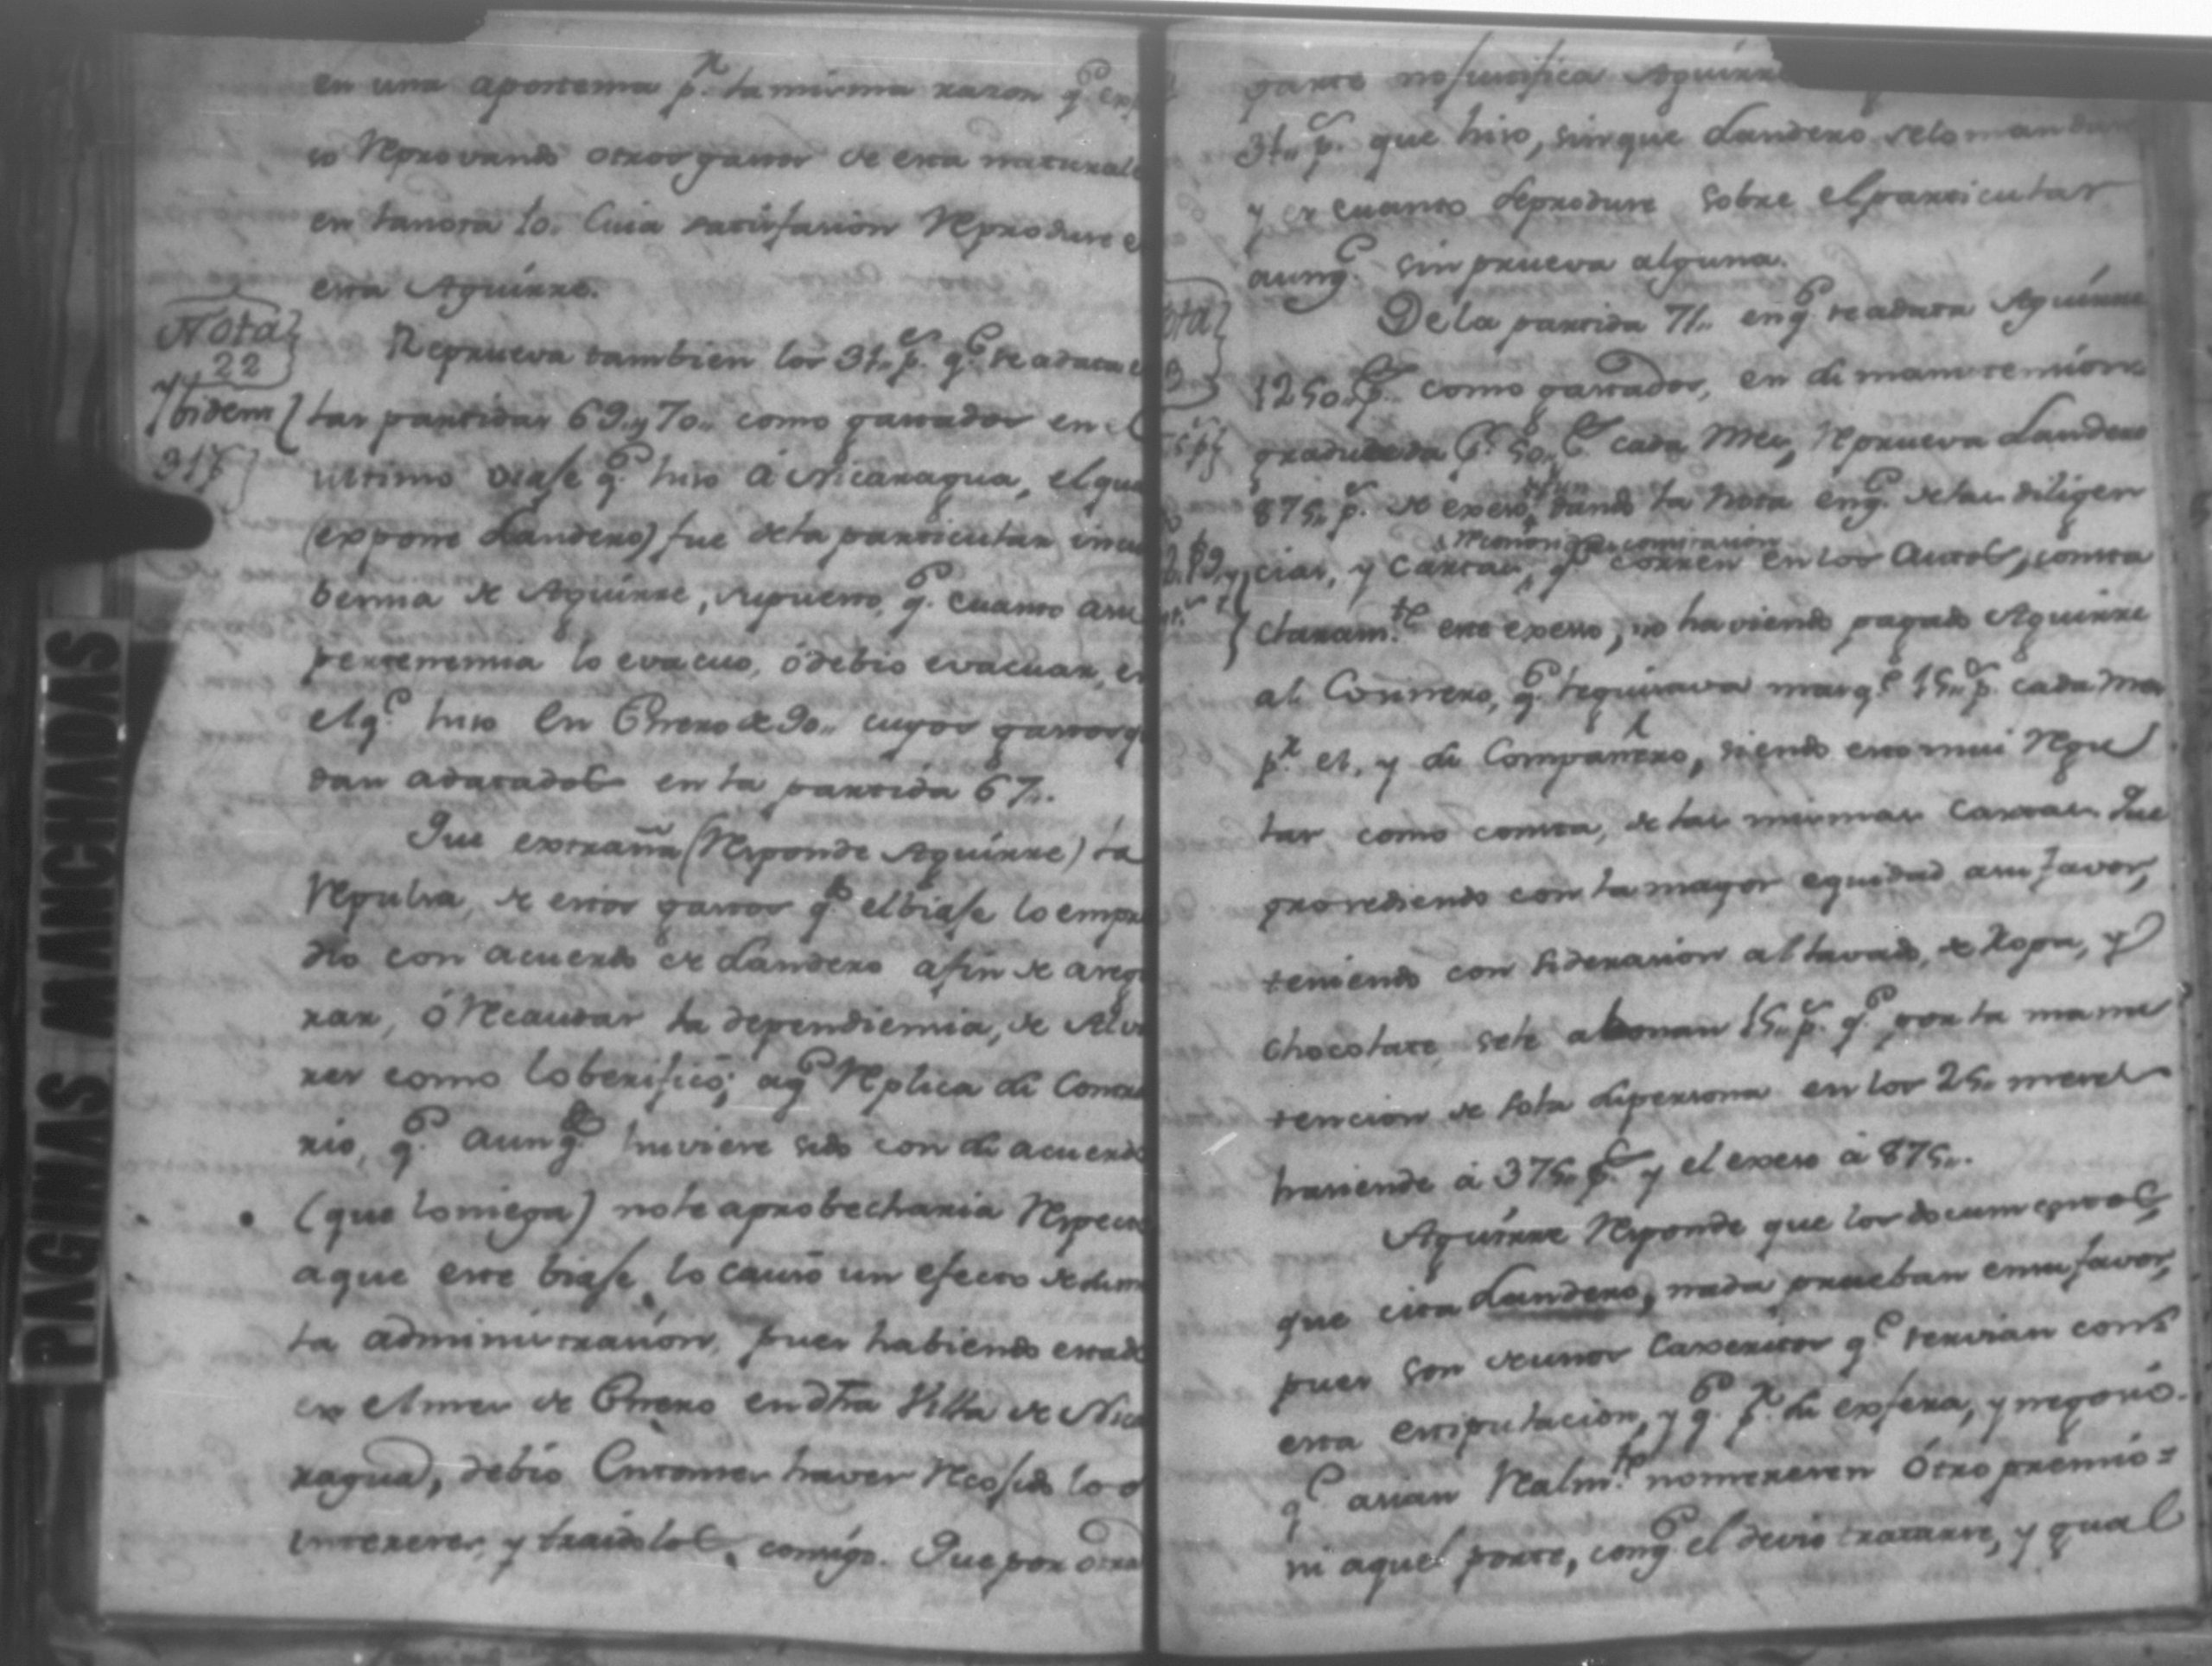 en una apostema pr. la misma razon qe. exp
so Reprovando otros gastos de esta naturale
en la nota 10. Cuia satisfasion Reproduse e
esta Aguirre.
Nota
22
Ibidem
317
Reprueva tambien los 31,, ps. qe. se adata e
las partidas 69,, y 70,, como gastados en el
ultimo viaje qe. hiso á Nicaragua, el qua
(expone Landero) fue de la particular incu
bensia de Aguirre, supuesto, qe. cuanto asu
pertenensia lo evacuo, ó debio evacuar, en
el qe. hiso en Enero de 90,, cuyos gastos q
dan adatados en la partida 67,,.
Que extraña (Responde Aguirre) la
Repulsa, de estos gastos qe. el biaje lo empre
dio con acuerdo de Landero afin de asegu
rar, ó Recaudar la dependiensia, de Alva
res como loberificó; aqe. Replica su Contra
rio, qe. aunqe. huviere sido con su acuerdo
(que lo niega) no le aprobecharia Respecto
a que este biaje, lo causó un efecto de su m
la administrasion, pues habiendo estado
en el mes de Enero en dha Villa de Nica
ragua, debio Entonses haver Recojido los
intereses, y traidolos, comigo. Que por otra
parte no justifica Aguirre
31,, ps. que hiso, sin que Landero selo mandar
y es cuanto Seproduse sobre el particular
aunqe. sin prueva alguna.
De la partida 71,, en qe. se adata Aguirre
1250,, ps. como gastados, en su mantension
graduada pr. 50,, ps. cada Mes, Reprueva Landero
875,, ps. de exseso, dando la nota en qe. de las diligen
cias, y Cartas, qe. corren en los Autos, consta
claramte. este exseso, no haviendo pagado Aguirre
al Cosinero, qe. le guisava mas qe. 15,, ps. cada mes
pr. el, y su Compañero, siendo esto mui Regu
lar como consta, de las mismas Cartas. Que
prosediendo con la mayor equidad asu favor,
teniendo con siderasion al lavado, de Ropa, y
chocolate, sele abonan 15,, ps. qe. por la manu
tencion de sola su persona en los 25,, meses
hasiende á 375,, ps. y el exseso á 875,,.
Aguirre Responde que los documentos,
que cita Landero, nada prueban ensu favor,
pues son de unos Caxeritos qe. servian con
esta estipulacion, y qe. pr. su exfera, y negosio.
qe. asian Realmte. no meresen Otro premio=
ni aquel porte, con qe. el devio tratarse, y qual